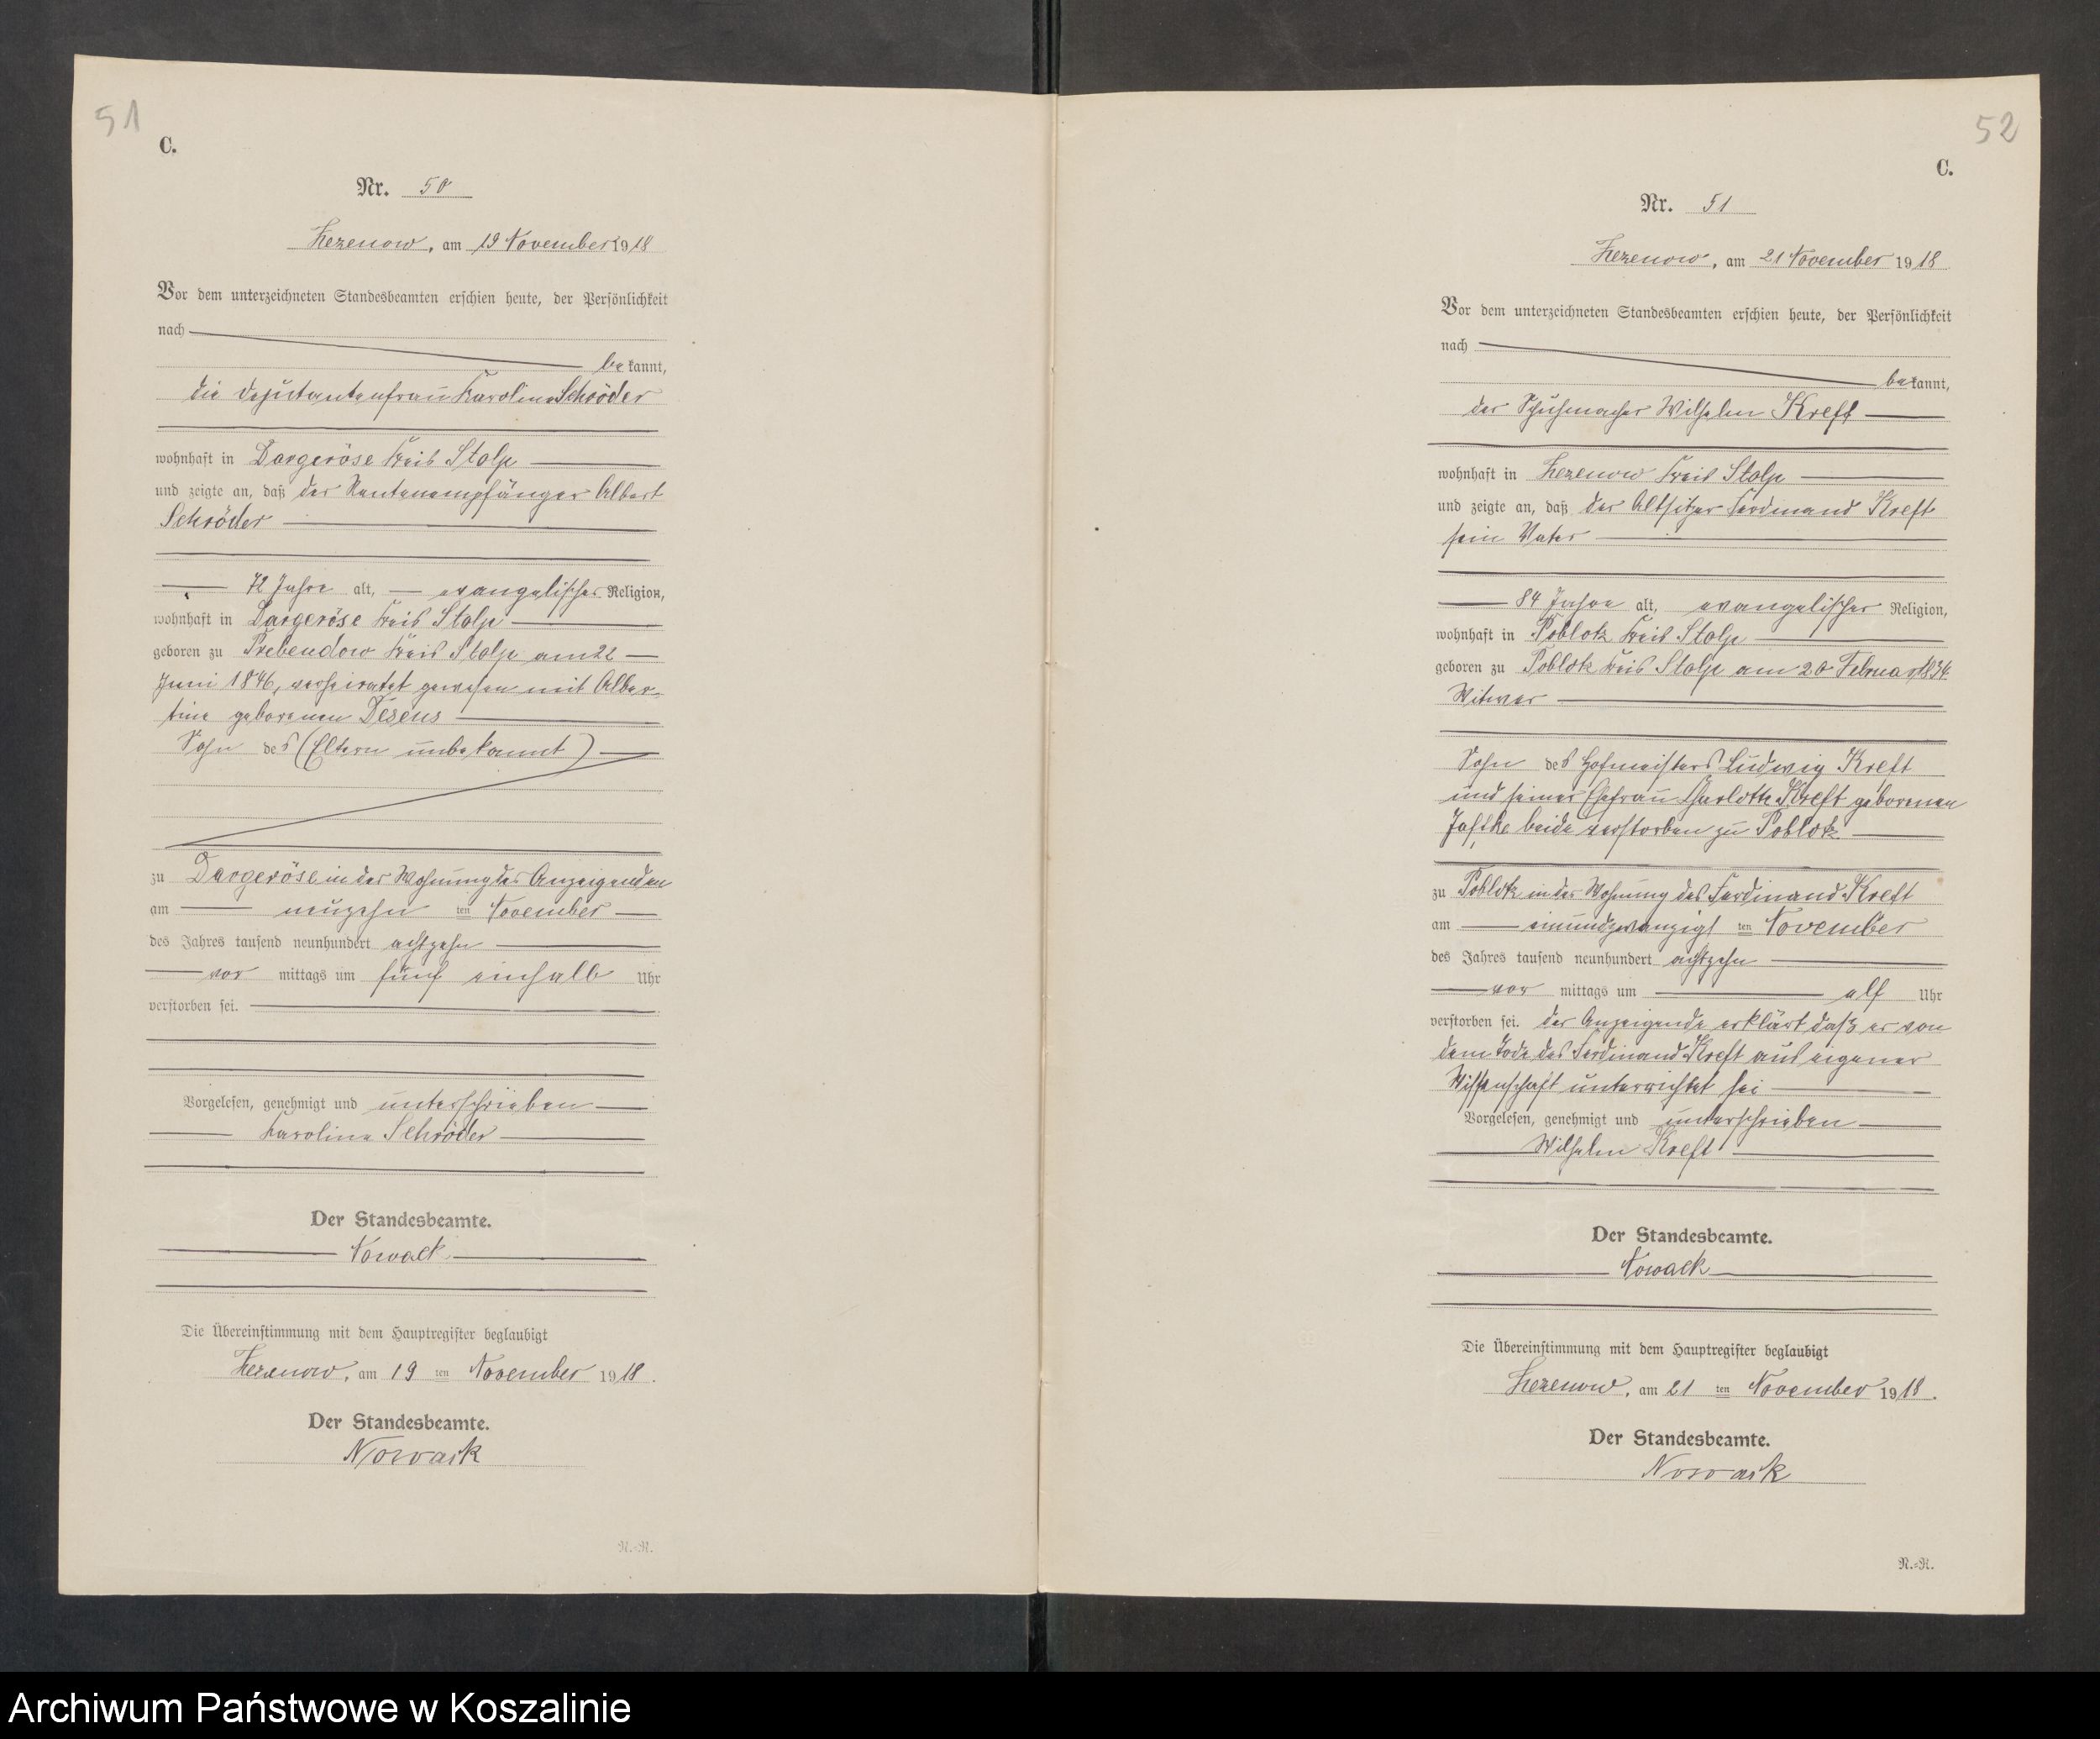 51
C.
Nr. 50
Zezenow, am 19 November 1918
Vor dem unterzeichneten Standesbeamten erschien heute, der Persönlichkeit
nach
bekannt,
die Deputantenfrau Karoline Schröder
wohnhaft in Dargeröse Kreis Stolp
und zeigte an, daß der Rentenempfänger Albert
Schröder
72 Jahre alt, evangelischer Religion,
wohnhaft in Dargeröse Kreis Stolp
geboren zu Prebendow Kreis Stolp am 22
Juni 1846, verheiratet gewesen mit Alber-
tine geborenen
Sohn des (Eltern unbekannt)
zu Dargeröse in der Wohnung der Anzeigenden
am neunzehn ten November
des Jahres tausend neunhundert achtzehn
vor mittags um fünf einhalb Uhr
verstorben sei.
Vorgelesen, genehmigt und unterschrieben
Karoline Schröder
Der Standesbeamte.
Nowack
Die Übereinstimmung mit dem Hauptregister beglaubigt
Zezenow, am 19 ten November 1918.
Der Standesbeamte.
Nowack
R.-R.
52
C.
Nr. 51
Zezenow, am 21 November 1918
Vor dem unterzeichneten Standesbeamten erschien heute, der Persönlichkeit
nach
bekannt,
der Schuhmacher Wilhelm Kreft
wohnhaft in Zezenow Kreis Stolp
und zeigte an, daß der Altsitzer Ferdinand Kreft
sein Vater
84 Jahre alt, evangelischer Religion,
wohnhaft in Poblotz Kreis Stolp
geboren zu Poblotz Kreis Stolp am 20 Februar 1834.
Witwer
Sohn des Hofmeisters Ludwig Kreft
und seiner Ehefrau Charlotte Kreft geborenen
beide verstorben zu Poblotz
zu Poblotz in der Wohnung des Ferdinand Kreft
am einundzwanzigst ten November
des Jahres tausend neunhundert achtzehn
vor mittags um elf Uhr
verstorben sei. Der Anzeigende erklärt daß er von
dem Tode des Ferdinand Kreft aus eigener
Wissenschaft unterrichtet sei
Vorgelesen, genehmigt und unterschrieben
Wilhelm Kreft
Der Standesbeamte.
Nowack
Die Übereinstimmung mit dem Hauptregister beglaubigt
Zezenow, am 21 ten November 1918.
Der Standesbeamte.
Nowack
R.-R.
Archiwum Państwowe w Koszalinie